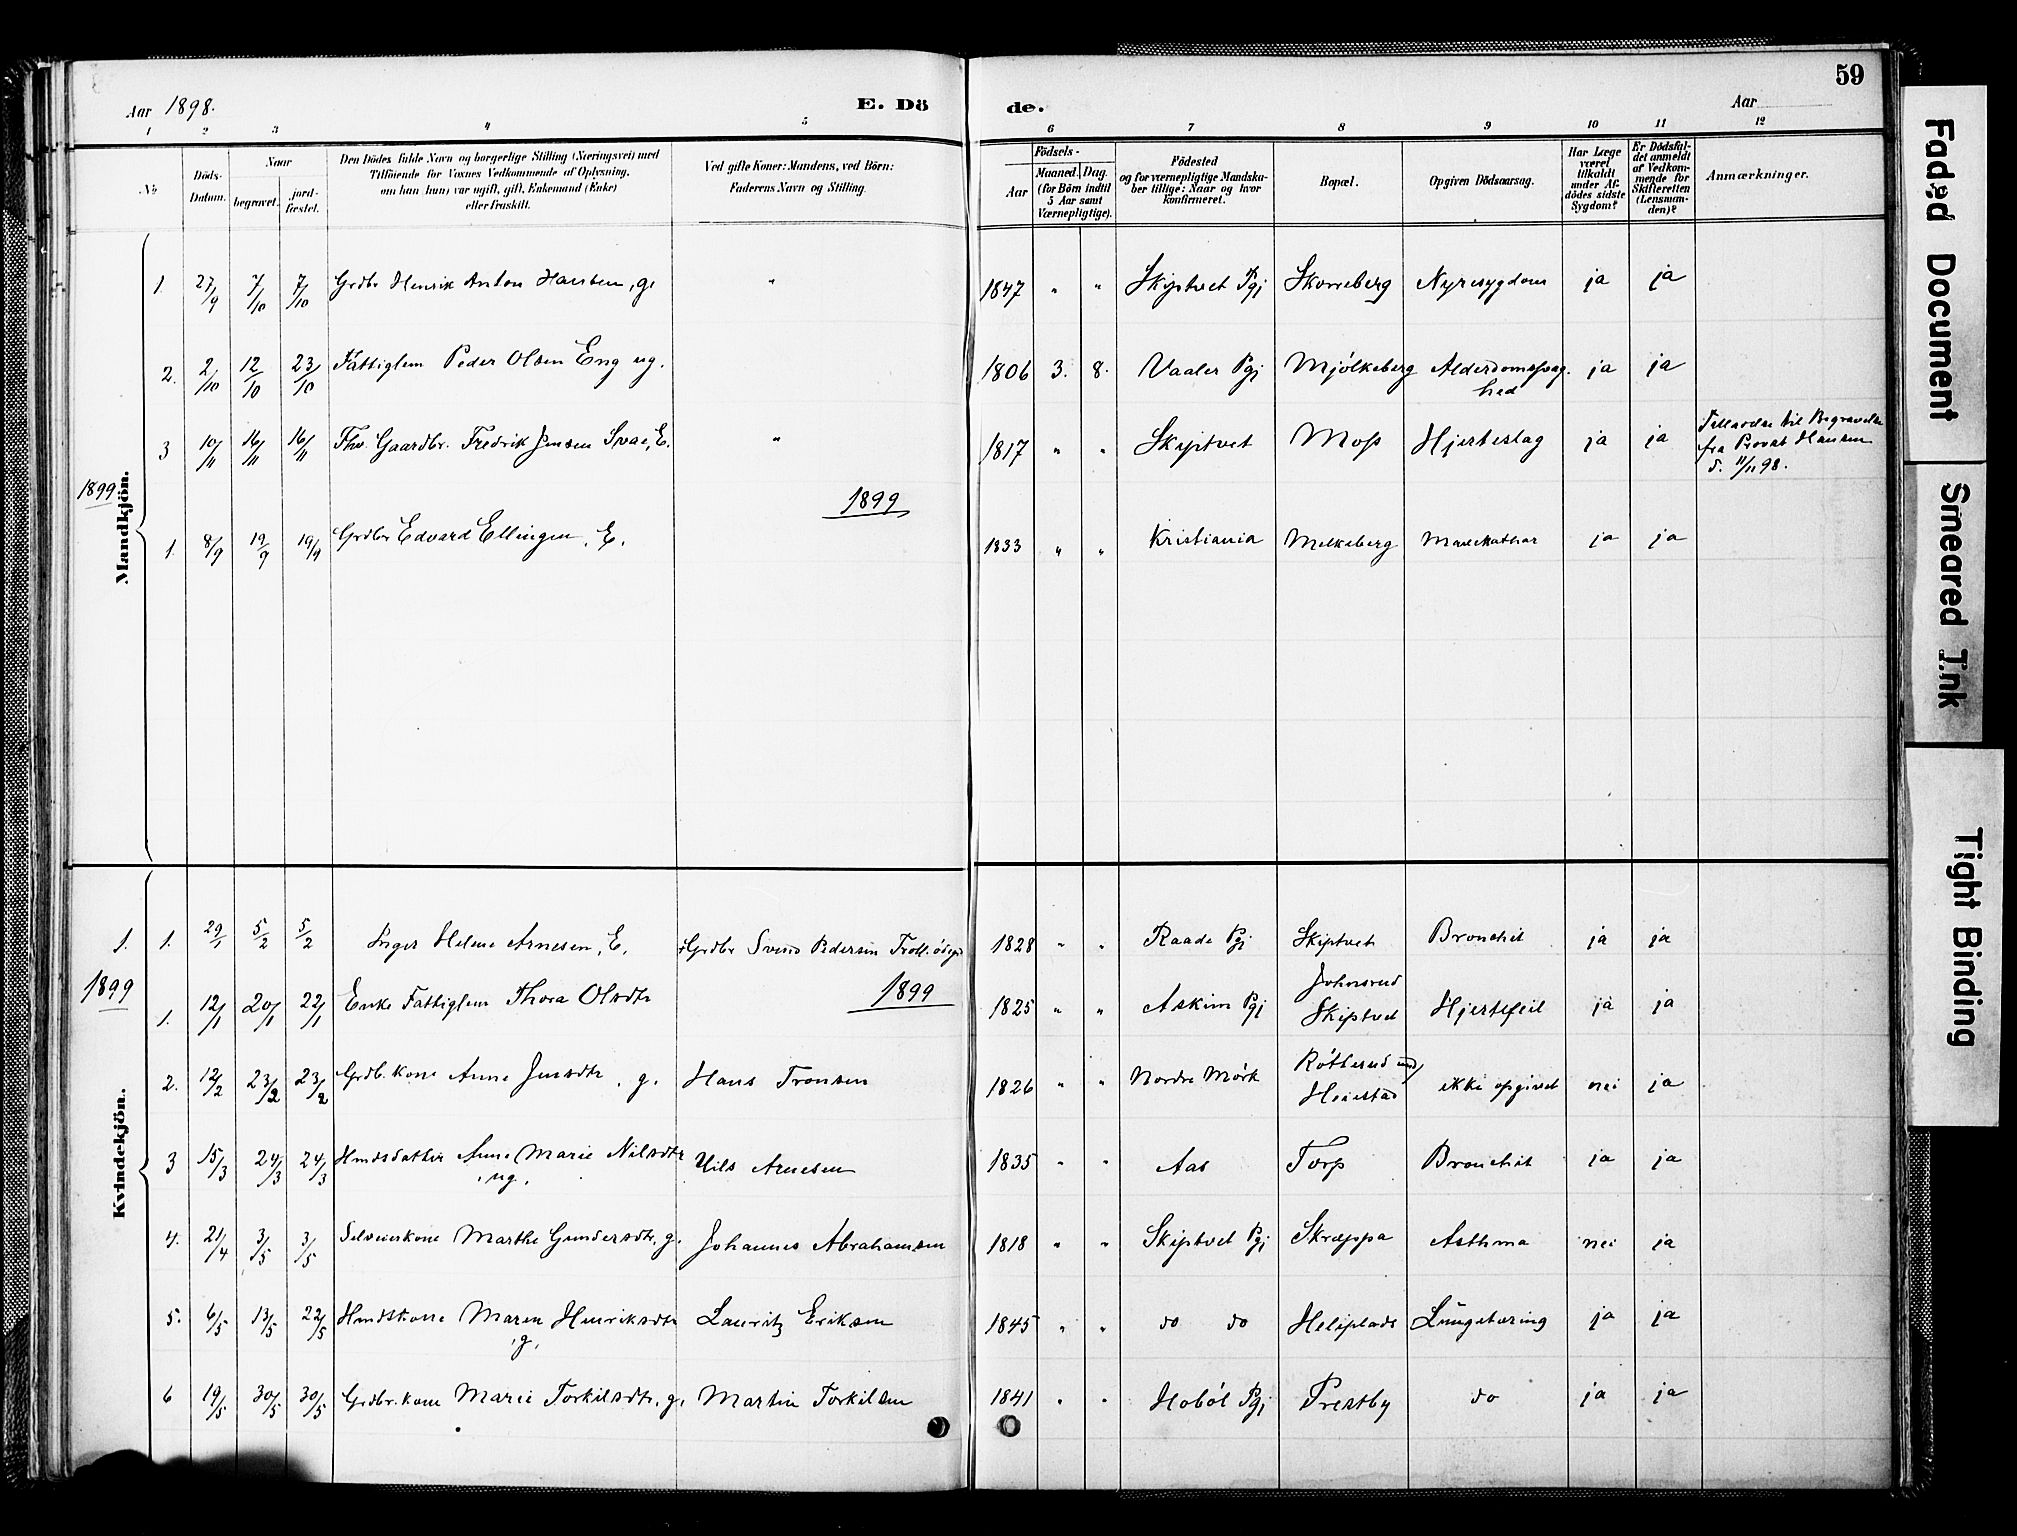 59
Aar 1898.
E. Dö
de.
Aar
1 2 3 4 5 6 7 8 9 10 11 12
No
Döds-
Datum.
Naar
begravet.
jord-
fæstet.
Den Dödes fulde Navn og borgerlige Stilling (Næringsvei) med
Tilföiende for Voxnes Vedkommende af Oplysning,
om han (hun) var ugift, gift, Enkemand (Enke)
eller fraskilt.
Ved gifte Koner: Mandens, ved Börn:
Faderens Navn og Stilling.
Födsels-
Aar
Maaned.
Dag.
(for Börn indtil
5 Aar samt
Værnepligtige).
Födested
og for værnepligtige Mandska-
ber tillige: Naar og hvor
konfirmeret.
Bopæl.
Opgiven Dödsaarsag.
Har Læge
været
tilkaldt
under Af-
dödes sidste
Sygdom?
Er Dödsfal-
det anmeldt
af Vedkom-
mende for
Skifteretten
(Lensman-
den)?
Anmærkninger.
Mandkjön.
1. 27/9 7/10 7/10 Grdbr Henrik Anton Hansen, g. " 1847 " " Skiptvet Pgj Skorreberg Nyresygdom ja ja
2. 2/10 12/10 23/10 Fattiglem Peder Olsen Eng ug. 1806 3. 8. Vaaler Pgj Mjölkeberg Alderdomssvag-
hed ja ja
3 10/11 16/11 16/11 Fhv. Gaardbr. Fredrik Jensen Svae, E. " 1817 " " Skiptvet Moss Hjerteslag ja ja Tilladelse til Begravelse
fra Provst Hansen
d. 11/11 98.
1899
1899
1. 8/9 19/9 19/9 Grdbr Edvard Ellingsen, E. 1833 " " Kristiania Melkeberg Mavekathar ja ja
Kvindekjön.
1. 1. 29/1 5/2 5/2 Inger Helene Arnesen, E. Grdbr Svend Pedersen 1828 " " Raade Pgj Skiptvet Bronchit ja ja
1899
1899
1. 12/1 20/1 22/1 Enke Fattiglem Thora Olsdtr 1825 " " Askim Pgj Johnsrud
Skiptvet Hjertefeil ja ja
2. 12/2 23/2 23/2 Grdb.kone Anne Jensdtr, g. Hans Tronsen 1826 " " Nordre Mörk Rötterud und
Heiestad ikke opgivet nei ja
3 15/3 24/3 24/3 Hmdsdatter Anne Marie Nilsdtr
, ug. Nils Arnesen 1835 " " Aas Torp Bronchit ja ja
4. 21/4 3/5 3/5 Selveierkone Marthe Gundersdtr, g. Johannes Abrahamsen 1818 " " Skiptvet Pgj Skræppa Asthma nei ja
5. 6/5 13/5 22/5 Hmdskone Maren Henriksdtr
, g. Lauritz Eriksen 1845 " " do do Heliplads Lungetæring ja ja
6 19/5 30/5 30/5 Grdbr.kone Marie Torkilsdtr, g. Martin Torkilsen 1841 " " Hoböl Pgj Prestby do ja ja
Faded Document
Smeared Ink
Tight Binding